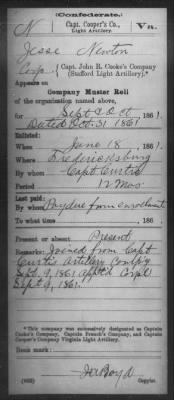 (Confederate.)
N Capt. Cooper's Co., Va.
Light Artillery.
Jesse Newton
Corp, Capt. John R. Cooke's Company
(Stafford Light Artillery).*
Appears on
Company Muster Roll
of the organization named above,
for Sept & Oct, 1861.
Dated Oct. 31 1861
Enlisted:
When June 18, 1861.
Where Fredericksburg
By whom Capt Curtis
Period 12 Mos
Last paid:
By whom Paydue from enrollment
To what time , 186 .
Present or absent Present
Remarks: Joined from Capt
Curtis Artillery Compy
Sept. 9, 1861 apptd Corpl
Sept 9, 1861.
*This company was successively designated as Captain
Cooke's Company, Captain French's Company, and Captain
Cooper's Company Virginia Light Artillery.
Book mark:
(642) J. A. Boyd
Copyist.